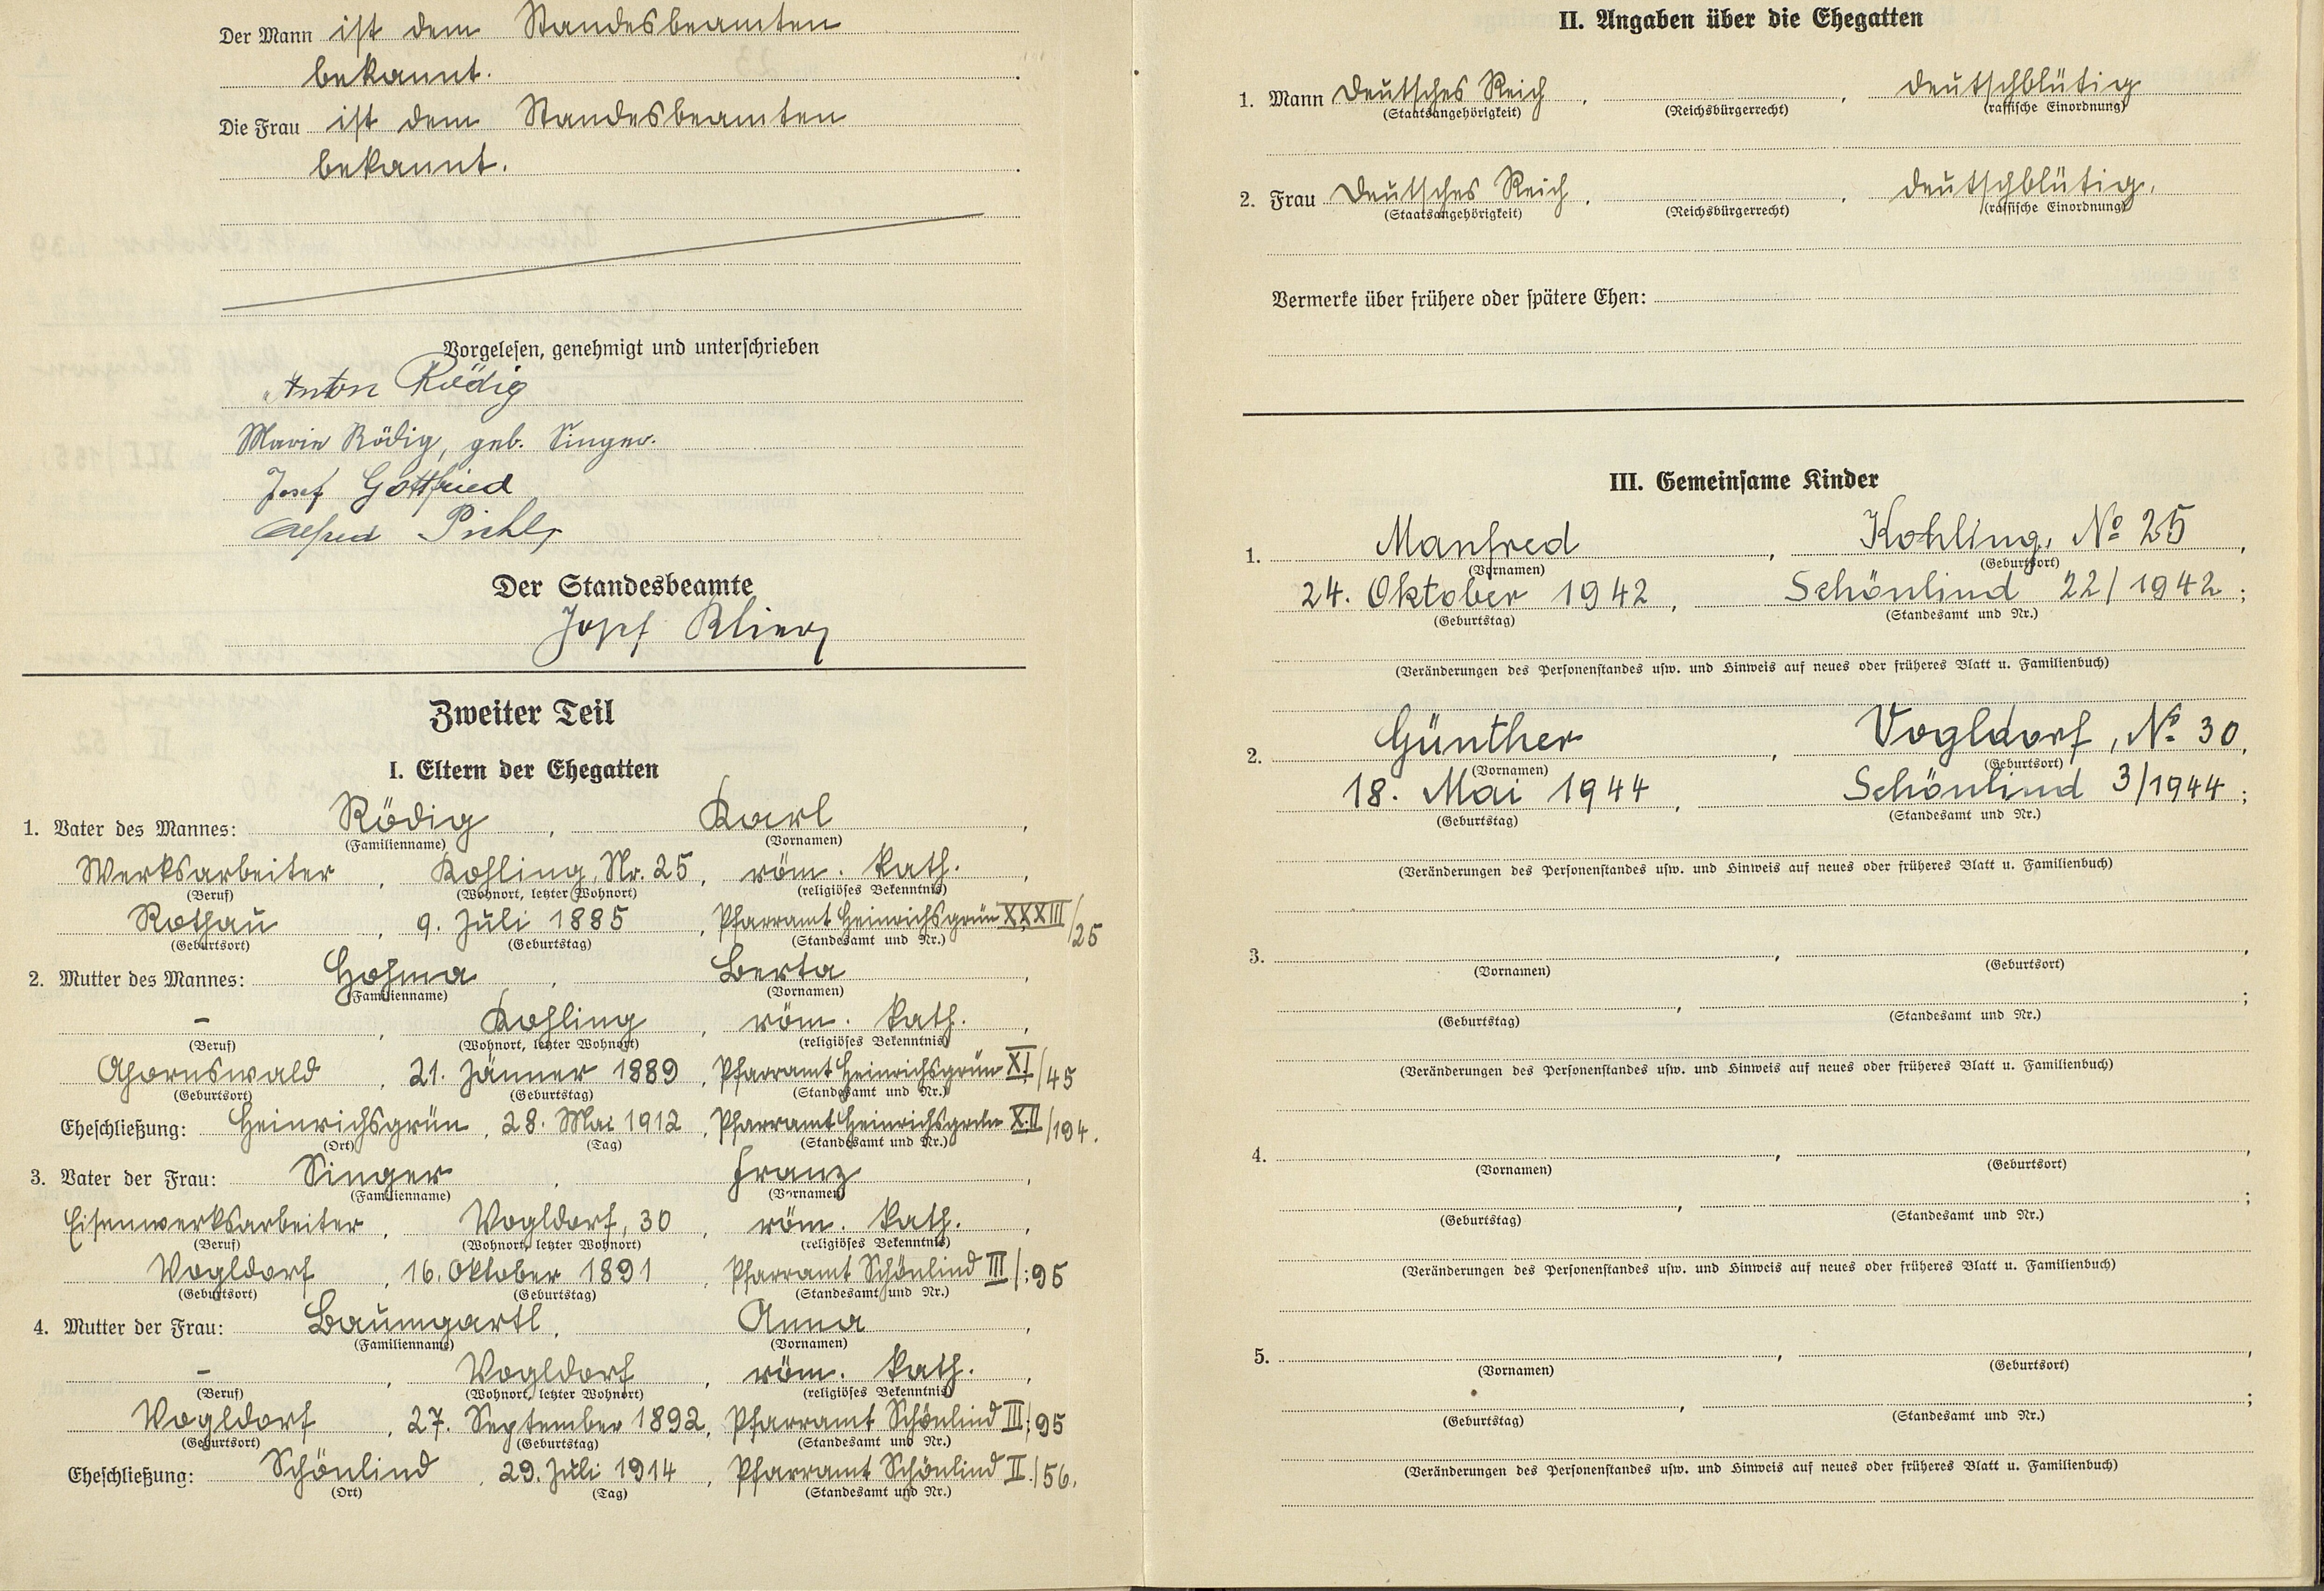 Der Mann ist dem Standesbeamten
bekannt.
Die Frau ist dem Standesbeamten
bekannt.
Vorgelesen, genehmigt und unterschrieben
Anton Rödig
Marie Rödig, geb. Singer.
Josef Gottfried
Alfred Pichl
Der Standesbeamte
Josef Klier
Zweiter Teil
I. Eltern der Ehegatten
1. Vater des Mannes: Rödig, Karl,
(Familienname) (Vornamen)
Werksarbeiter, Kohling, Nr. 25, röm. kath.,
(Beruf) (Wohnort, letzter Wohnort) (religiöses Bekenntnis)
Rothau, 9. Juli 1885, Pfarramt Heinrichsgrün XXXIII/25
(Geburtsort) (Geburtstag) (Standesamt und Nr.)
2. Mutter des Mannes: Hohma, Berta,
(Familienname) (Vornamen)
–, Kohling, röm. kath.,
(Beruf) (Wohnort, letzter Wohnort) (religiöses Bekenntnis)
Ahornswald, 21. Jänner 1889, Pfarramt Heinrichsgrün XI/45
(Geburtsort) (Geburtstag) (Standesamt und Nr.)
Eheschließung: Heinrichsgrün, 28. Mai 1912, Pfarramt Heinrichsgrün XII/194.
(Ort) (Tag) (Standesamt und Nr.)
3. Vater der Frau: Singer, Franz,
(Familienname) (Vornamen)
Eisenwerksarbeiter, Vogldorf, 30, röm. kath.,
(Beruf) (Wohnort, letzter Wohnort) (religiöses Bekenntnis)
Vogldorf, 16. Oktober 1891, Pfarramt Schönlind III/:95
(Geburtsort) (Geburtstag) (Standesamt und Nr.)
4. Mutter der Frau: Baumgartl, Anna,
(Familienname) (Vornamen)
–, Vogldorf, röm. kath.,
(Beruf) (Wohnort, letzter Wohnort) (religiöses Bekenntnis)
Vogldorf, 27. September 1892, Pfarramt Schönlind III/:95
(Geburtsort) (Geburtstag) (Standesamt und Nr.)
Eheschließung: Schönlind, 29. Juli 1914, Pfarramt Schönlind II./56.
(Ort) (Tag) (Standesamt und Nr.)
II. Angaben über die Ehegatten
1. Mann Deutsches Reich, , deutschblütig
(Staatsangehörigkeit) (Reichsbürgerrecht) (rassische Einordnung)
2. Frau Deutsches Reich, , deutschblütig.
(Staatsangehörigkeit) (Reichsbürgerrecht) (rassische Einordnung)
Vermerke über frühere oder spätere Ehen:
III. Gemeinsame Kinder
1. Manfred, Kohling, No 25,
(Vornamen) (Geburtsort)
24. Oktober 1942, Schönlind 22/1942;
(Geburtstag) (Standesamt und Nr.)
(Veränderungen des Personenstandes usw. und Hinweis auf neues oder früheres Blatt u. Familienbuch)
2. Günther, Vogldorf, No 30,
(Vornamen) (Geburtsort)
18. Mai 1944, Schönlind 3/1944;
(Geburtstag) (Standesamt und Nr.)
(Veränderungen des Personenstandes usw. und Hinweis auf neues oder früheres Blatt u. Familienbuch)
3. , ,
(Vornamen) (Geburtsort)
, ;
(Geburtstag) (Standesamt und Nr.)
(Veränderungen des Personenstandes usw. und Hinweis auf neues oder früheres Blatt u. Familienbuch)
4. , ,
(Vornamen) (Geburtsort)
, ;
(Geburtstag) (Standesamt und Nr.)
(Veränderungen des Personenstandes usw. und Hinweis auf neues oder früheres Blatt u. Familienbuch)
5. , ,
(Vornamen) (Geburtsort)
, ;
(Geburtstag) (Standesamt und Nr.)
(Veränderungen des Personenstandes usw. und Hinweis auf neues oder früheres Blatt u. Familienbuch)